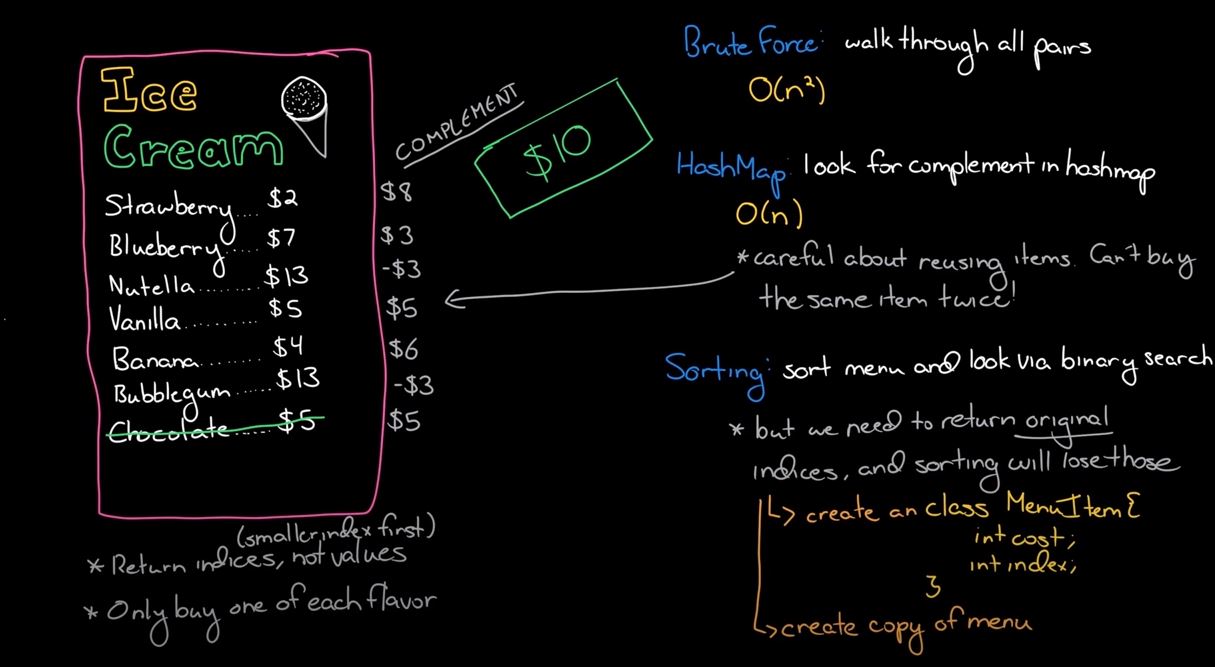 Ice
Cream
Strawberry.... $2
Blueberry..... $7
Nutella......... $13
Vanilla.......... $5
Banana........ $4
Bubblegum...... $13
Chocolate...... $5
COMPLEMENT
$8
$3
-$3
$5
$6
-$3
$5
$10
(smaller index first)
* Return indices, not values
* Only buy one of each flavor
Brute Force: walk through all pairs
O(n²)
HashMap: look for complement in hashmap
O(n)
*careful about reusing items. Can't buy
the same item twice!
Sorting: sort menu and look via binary search
* but we need to return original
indices, and sorting will lose those
create an class MenuItem {
int cost;
int index;
}
create copy of menu